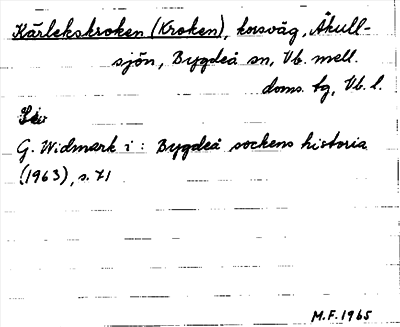 Kärlekskroken (Kroken), korsväg, Åkull-
sjön, Bygdeå sn, Vb. mell.
doms. tg, Vb. l.
G. Widmark i: Bygdeå sockens historia
(1963), s. 71
M.F. 1965